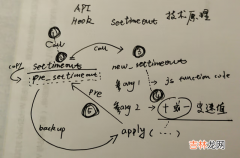 API
Hook settimeout 技术原理
①
Call
call
②
copy
settimeout
pre_settimeout
new_settimeout
$arg 1 → js function code
pre
$arg 2 → + 或 - 变速值
③
backup
apply (...)
吉林龙网